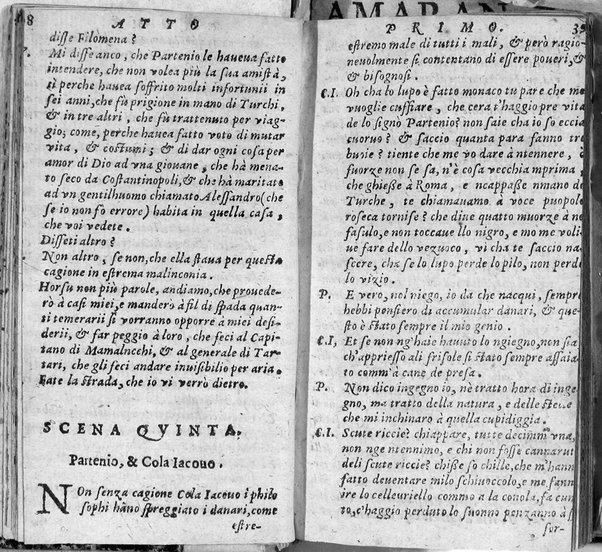 AMARAN
38 ATTO
disse Filomena?
P. Mi disse anco, che Partenio le haueua fatto
intendere, che non volea più la sua amistà,
si perche haueua sofferto molti infortunii in
sei anni, che fù prigione in mano di Turchi,
& in tre altri, che fù trattenuto per viag-
gio; come, perche hauea fatto voto di mutar
vita, & costumi; & di dar ogni cosa per
amor di Dio ad vna giouane, che hà mena-
to seco da Costantinopoli, & che hà maritata
ad vn gentilhuomo chiamato Alessandro (che
se io non fo errore) habita in quella casa,
che voi vedete.
Disseti altro?
Non altro, se non, che ella staua per questa
cagione in estrema malinconia.
Horsu non più parole, andiamo, che prouede-
rò à casi miei, e manderò à fil di spada quan-
ti temerarii si vorranno opporre à miei desi-
derii, & far peggio à loro, che feci al Capi-
tano di Mamalucchi, & al generale di Tar-
tari, che gli feci andare inuisibilio per aria.
Fate la strada, che io vi verrò dietro.
SCENA QVINTA.
Partenio, & Cola Iacouo.
NOn senza cagione Cola Iacouo i philo
sophi hãno spreggiato i danari, come
estre-
PRIMO. 39
estremo male di tutti i mali, & però ragio-
neuolmente si contentano di essere poueri, &
& bisognosi.
C.I. Oh cha lo lupo è fatto monaco tu pare che me
vuoglie cuffiare, che cera t'haggio pre vita
de lo signò Partenio? non saie cha io so ecciа
cuoruo? & saccio quanta para fanno tre
buoie? tiente che me vo dare à ntennere, ò
fuorze non se sa, n'è cosa vecchia mprima,
che ghiesse à Roma, e ncappasse nmano de
Turche, te chiamauamo à voce puopolo
roseca tornise? che dine quatto muorze à no
fasulo, e non toccaue llo nigro, e mo me voli-
ue fare dello vezuoco, vi cha te saccio na-
scere, cha se lo lupo perde lo pilo, non perde
lo vizio.
P. E vero, nol niego, io da che nacqui, sempre
hebbi pensiero di accumular danari, & que-
sto è stato sempre il mio genio.
C.I, Et se non ng'haie hauuto lo ngiegno, non sia
ch'appriesso alli frisole si stato sempre assaia-
to comm'à cane de presa.
P. Non dico ingegno io, nè tratto hora di inge-
gno, ma tratto della natura, e delle stelle
che mi inchinaro à quella cupidiggia.
C.I. Scute riccie? chiappare, tutte decimm'vna,
non nge ntennimo, e chi non fosse cannarut
deli scute riccie? chisse so chille, che m'hanno
fatto deuentare milo schiuoccolo, e me fanno
ire lo cellevriello commo a la conola, fa cun-
to, c'haggio perduto lo suonno penzanno à s
for-